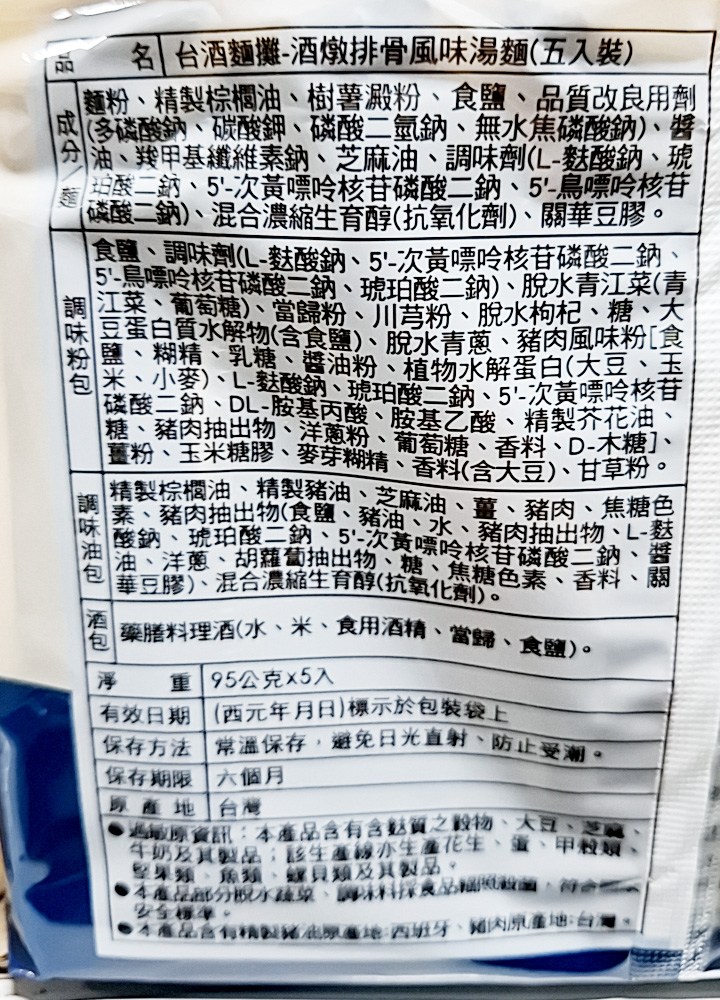 品名 台酒麵攤-酒燉排骨風味湯麵(五入裝)
成分/麵
麵粉、精製棕櫚油、樹薯澱粉、食鹽、品質改良用劑
(多磷酸鈉、碳酸鉀、磷酸二氫鈉、無水焦磷酸鈉)、醬
油、羧甲基纖維素鈉、芝麻油、調味劑(L-麩酸鈉、琥
珀酸二鈉、5'-次黃嘌呤核苷磷酸二鈉、5'-鳥嘌呤核苷
磷酸二鈉)、混合濃縮生育醇(抗氧化劑)、關華豆膠。
調味粉包
食鹽、調味劑(L-麩酸鈉、5'-次黃嘌呤核苷磷酸二鈉、
5'-鳥嘌呤核苷磷酸二鈉、琥珀酸二鈉)、脫水青江菜(青
江菜、葡萄糖)、當歸粉、川芎粉、脫水枸杞、糖、大
豆蛋白質水解物(含食鹽)、脫水青蔥、豬肉風味粉[食
鹽、糊精、乳糖、醬油粉、植物水解蛋白(大豆、玉
米、小麥)、L-麩酸鈉、琥珀酸二鈉、5'-次黃嘌呤核苷
磷酸二鈉、DL-胺基丙酸、胺基乙酸、精製芥花油、
糖、豬肉抽出物、洋蔥粉、葡萄糖、香料、D-木糖]、
薑粉、玉米糖膠、麥芽糊精、香料(含大豆)、甘草粉。
調味油包
精製棕櫚油、精製豬油、芝麻油、薑、豬肉、焦糖色
素、豬肉抽出物(食鹽、豬油、水、豬肉抽出物、L-麩
酸鈉、琥珀酸二鈉、5'-次黃嘌呤核苷磷酸二鈉、醬
油、洋蔥、胡蘿蔔抽出物、糖、焦糖色素、香料、關
華豆膠)、混合濃縮生育醇(抗氧化劑)。
酒包 藥膳料理酒(水、米、食用酒精、當歸、食鹽)。
淨重 95公克x5入
有效日期 (西元年月日)標示於包裝袋上
保存方法 常溫保存，避免日光直射、防止受潮。
保存期限 六個月
原產地 台灣
●過敏原資訊：本產品含有含麩質之穀物、大豆、芝麻、
牛奶及其製品；該生產線亦生產花生、蛋、甲殼類、
堅果類、魚類、螺貝類及其製品。
●本產品部分脫水蔬菜、調味料採食品輻照殺菌，符合
安全標準。
●本產品含有精製豬油原產地:西班牙、豬肉原產地:台灣。